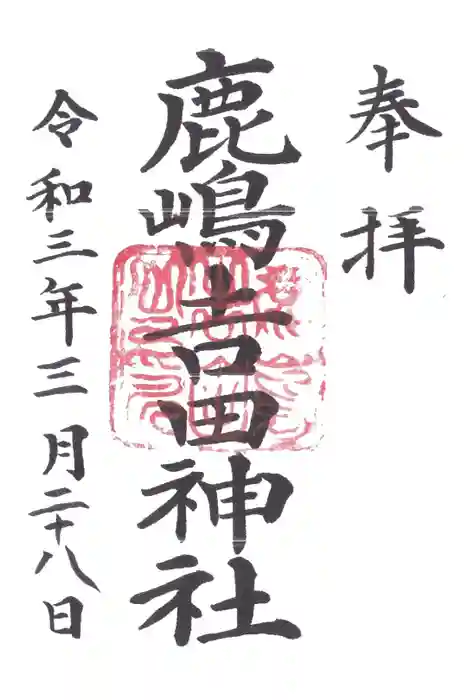 奉拝
鹿嶋吉田神社
令和三年三月二十八日